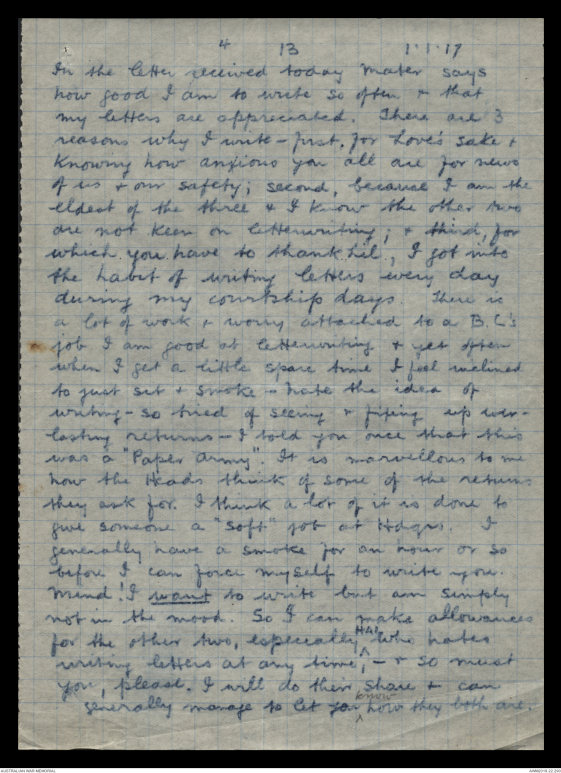 4 13 1.1.17
In the letter received today Mater says
how good I am to write so often & that
my letters are appreciated. There are 3
reasons why I write – first, for Love's sake &
knowing how anxious you all are for news
of us & our safety; second, because I am the
eldest of the three & I know the other two
are not keen on letterwriting; & third, for
which you have to thank Lil., I got into
the habit of writing letters every day
during my courtship days. There is
a lot of work & worry attached to a B.C's
job I am good at letterwriting & yet often
when I get a little spare time I feel inclined
to just sit & smoke – hate the idea of
writing – so tired of seeing & fixing up ever-
lasting returns – I told you once that this
was a "Paper Army". It is marvellous to me
how the Heads think of some of the returns
they ask for. I think a lot of it is done to
give someone a "soft" job at Hdqrs. I
generally have a smoke for an hour or so
before I can force myself to write you.
Mind! I want to write but am simply
not in the mood. So I can make allowances
for the other two, especially Hal who hates
writing letters at any time; – & so must
you, please. I will do their share & can
generally manage to let you know how they both are.
AUSTRALIAN WAR MEMORIAL